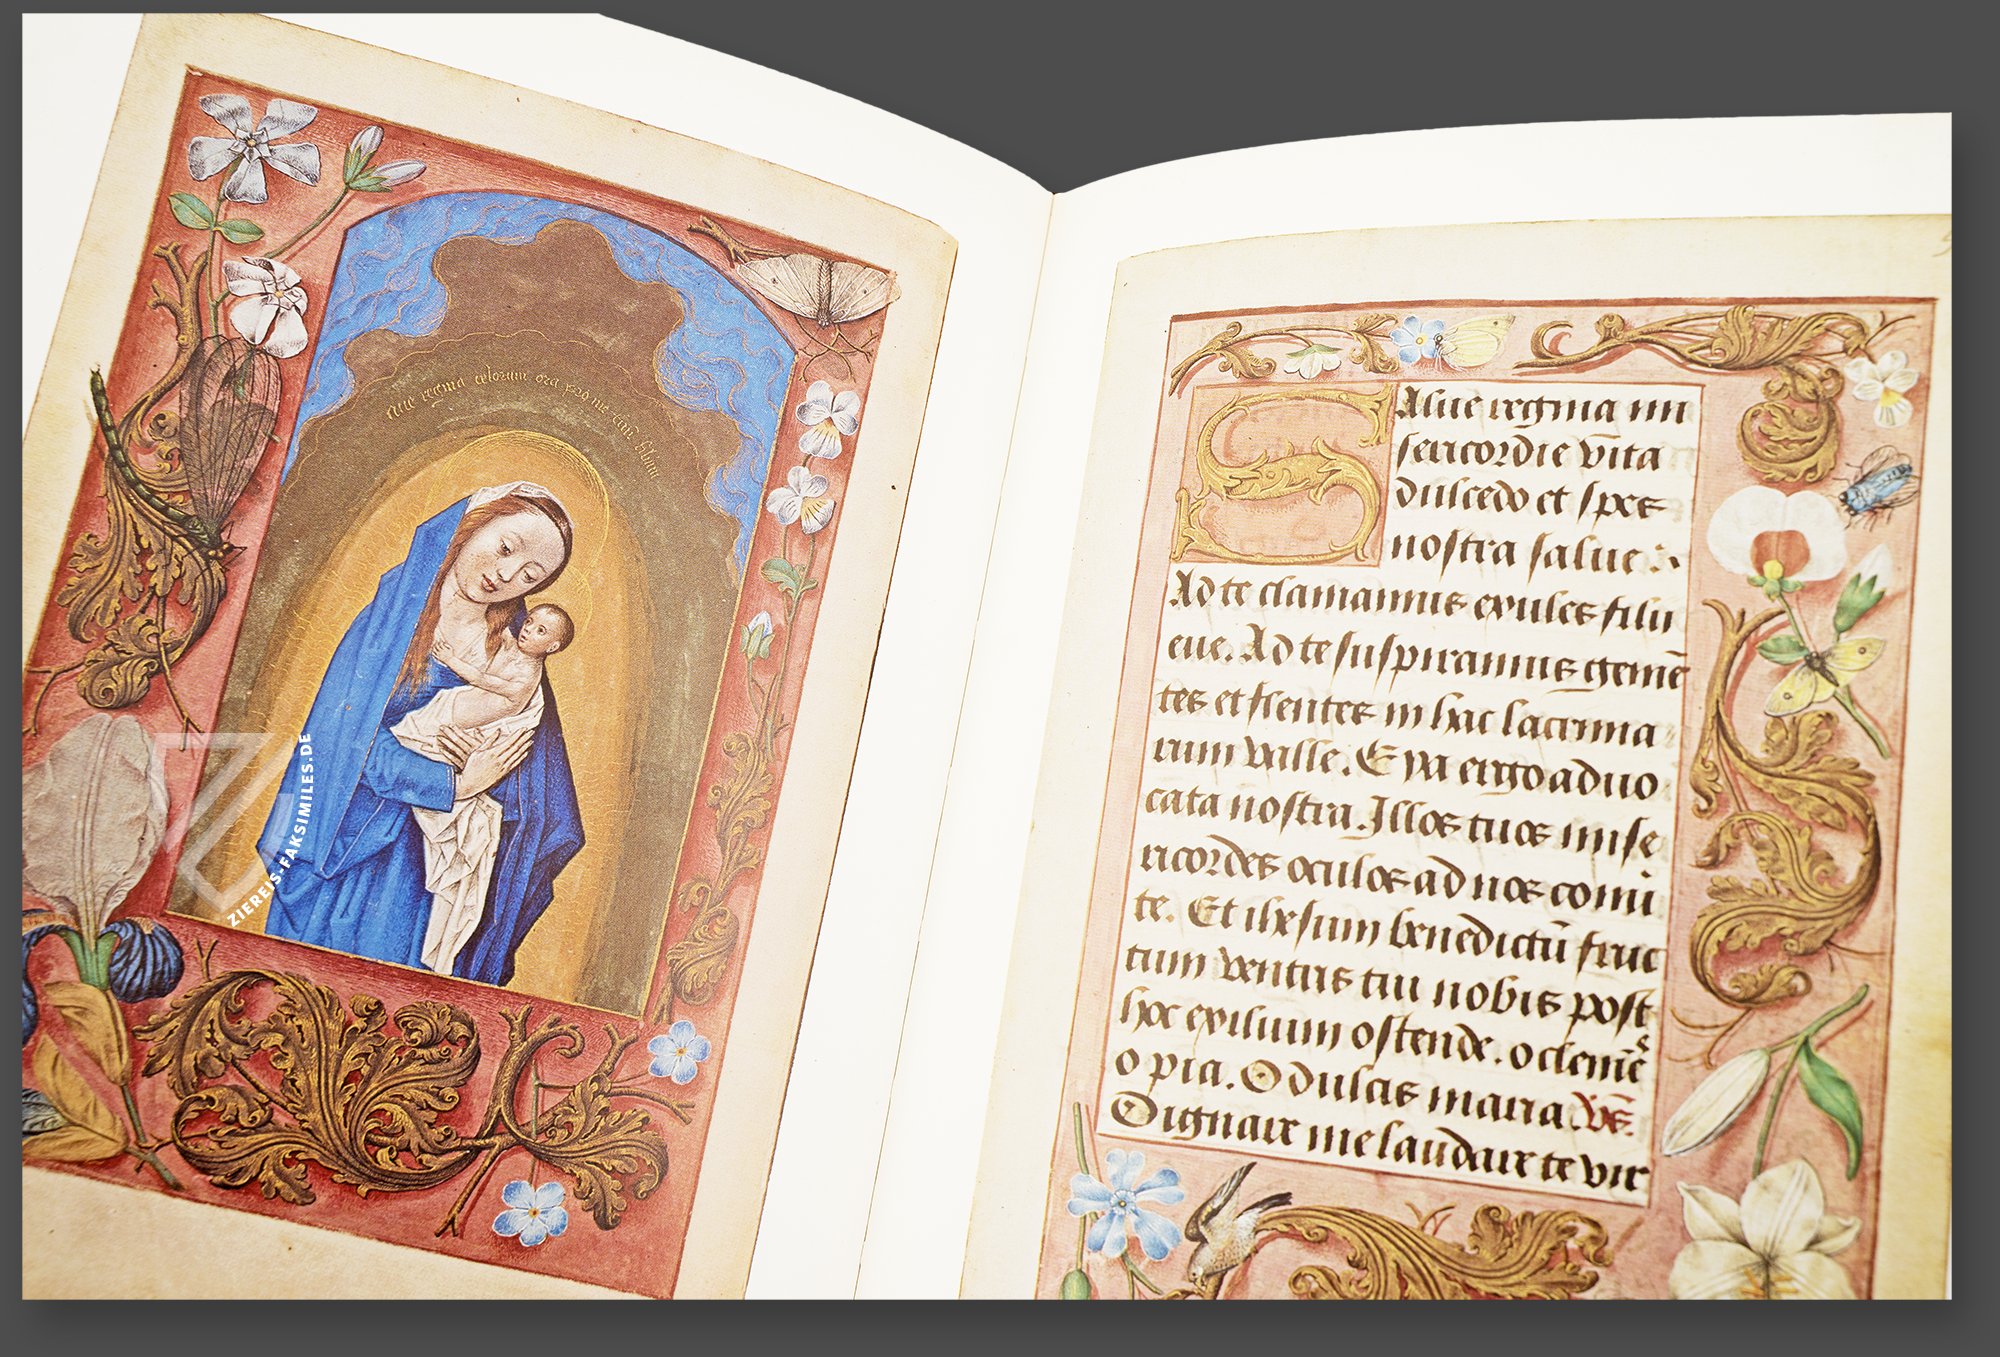 Aue regina celorum ora pro me tuū filium
ZIEREIS-FAKSIMILES.DE
Salue regina mi
sericordie vita
dulcedo et spes
nostra salue.
Ad te clamamus exules filii
eue. Ad te suspiramus gemē
tes et flentes in hac lacrima
rum valle. Eya ergo aduo
cata nostra. Illos tuos mise
ricordes oculos ad nos conu
te. Et ihesum benedictū fruc
tum ventris tui nobis post
hoc exilium ostende. o clemēs
o pia. O dulcis maria. Vs.
Dignare me laudare te vir